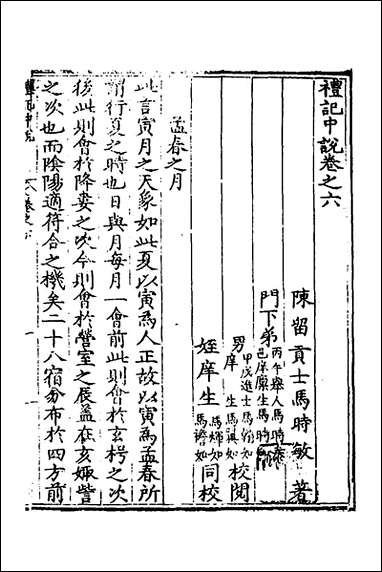 禮記中說卷之六
陳留貢士馬時敏著
門下弟丙午舉人馬時
邑庠廪生馬時
甲戌進士馬翰如
男庠生馬如校閱
姪庠生馬如
馬如同校
孟春之月
此言寅月之天象如此夏以寅為人正故以寅為孟春所
謂行夏之時也日與月每月一會前此則會於玄枵之次
後此則會於降婁之次今則會於營室之辰葢在亥娵訾
之次也而陰陽適符合之機矣二十八宿分布於四方前
禮記中說
卷之六